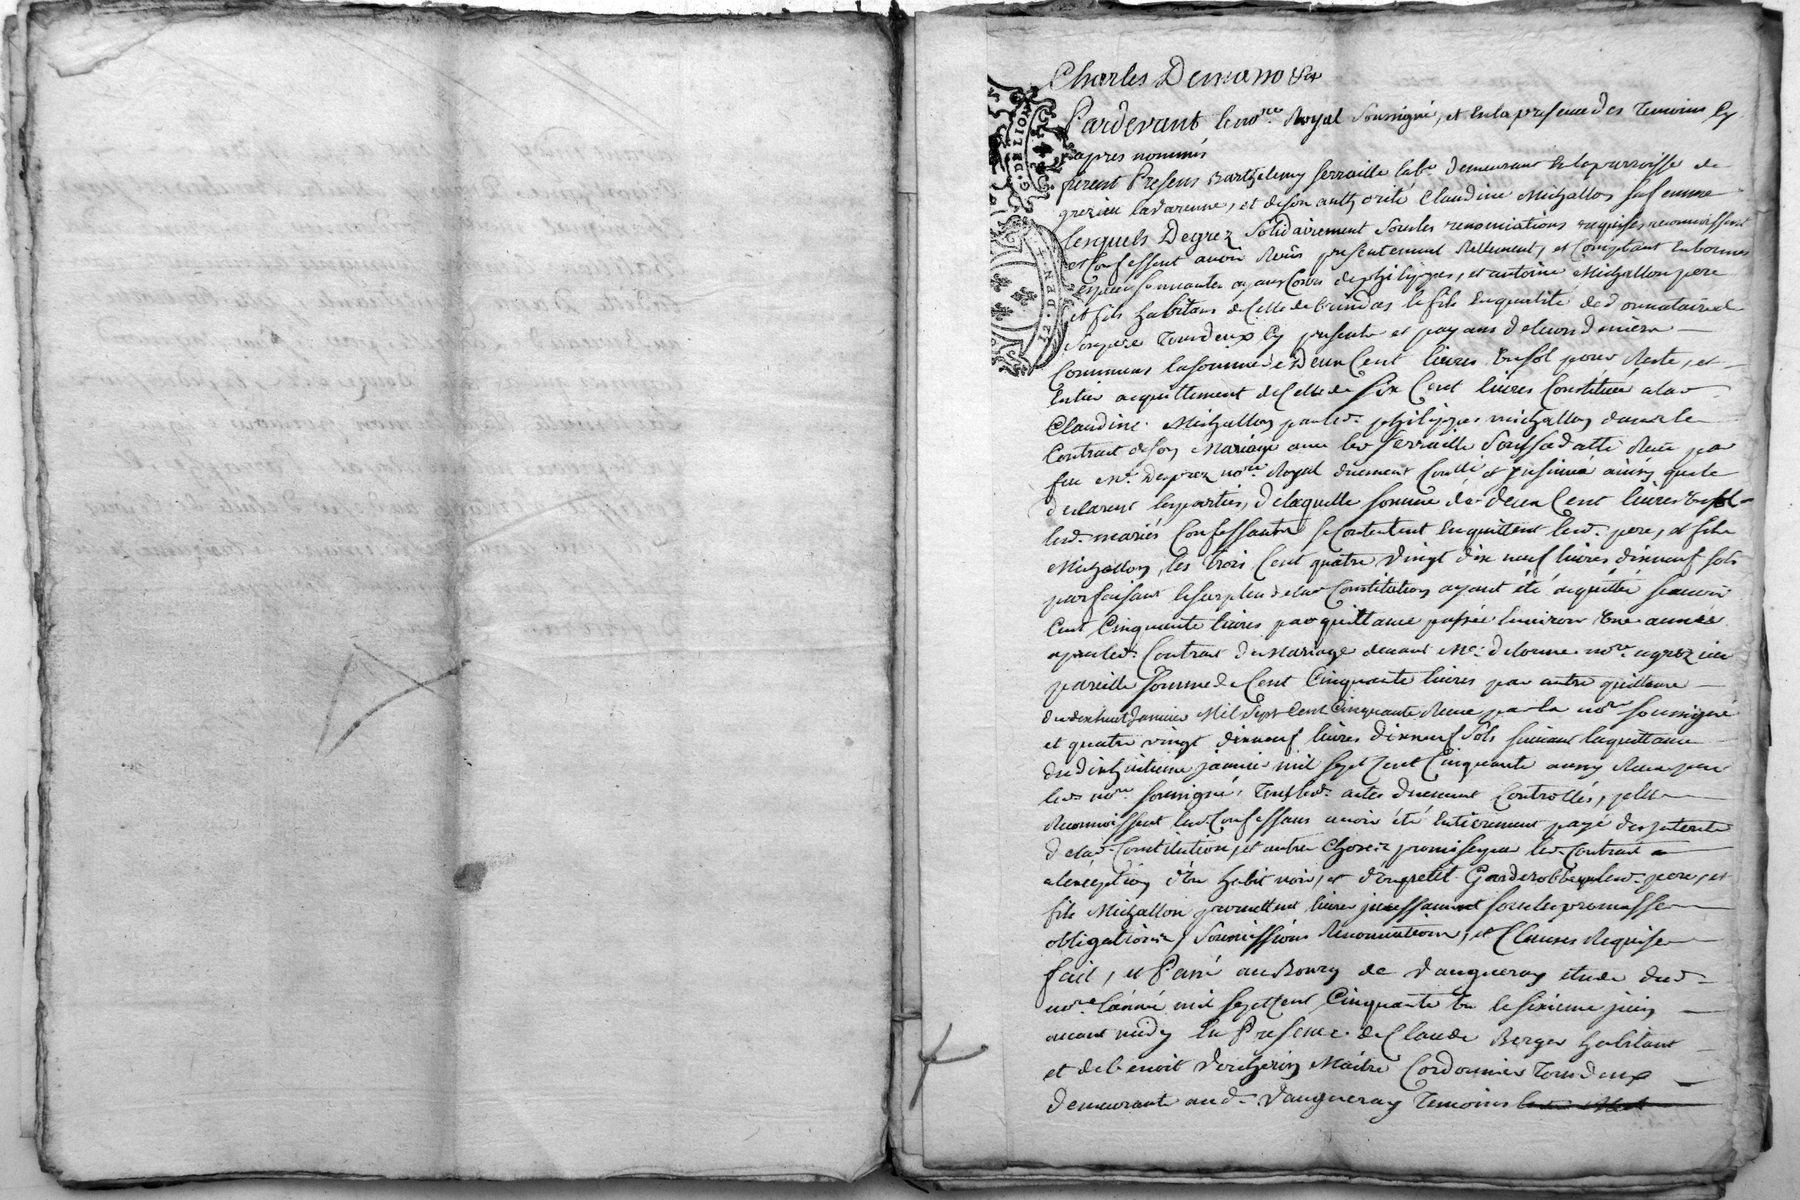 G. DE LION
12 DEN
Charles Demano
Pardevant le no.re Royal Soussigné, et En la presence des Temoins Cy
apres nommés
furent Presens Barthelemy ferraille lab.r demeurant En la parroisse de
grezieu lavarenne, et de son authorité Claudine Michallon sa femme
lesquels Degrez Solidairement Sous les renonciations requises reconnoissent
et Confessent avoir Receu presentement Reellement, et Comptant En bonnes
Especes sonnantes ayans Cours de philippes, et antoine Michallon pere
et fils habitans de Celle de brindas le fils En qualité de donnataire de
Sonpere Tous deux Cy presents et payans de leurs deniers
Communs la somme de Deux Cent livres Un sol pour Reste, et
Entier acquittement de Celle de Six Cent livres Constituée a lad.
Claudine Michallon par led. philippes michallon dans le
Contrat de son Mariage avec led ferraille Sous sa datte Receu par
feu M.e Degrez no.re Royal duement Conllé et Insinué ainsy que le
declarent les parties, de laquelle somme de deux Cent livres Un sol
lesd. mariés Confessants se Contentent En quittent lesd. pere, et fils
Michallon, les trois Cent quatre vingt dix neuf livres dixneuf sols
parfaisant le surplus de lad Constitution ayant été acquittés scavoir
Cent Cinquante livres par quittance passée Environ Une année
apres led. Contrat de Mariage devant M.e delorme no.re a grezieu
pareille somme de Cent Cinquante livres par autre quittance
du dixhuit Janvier Mil Sept Cent Cinquante Receue par le no.re soussigné
et quatre vingt dixneuf livres dixneuf Sols suivant la quittance
du dixhuitieme janvier mil sept Cent Cinquante aussy Receue par
led. no.re soussigné, Tous lesd. actes duement Controllés, plus
Reconnoissent lesd. Confessans avoir été Entierement payé des interets
de lad. Constitution, et autres Choses promises par led. Contrat
a l'exception d'Un habit noir, et d'Un petit Garderobbe que lesd. pere, et
fils Michallon promettent livrer incessamment sous les promesses
obligations, Soumissions Renonciations, et Clauses Requises
fait, et Passé au Bourg de vaugneray étude dud.
no.re l'année mil sept Cent Cinquante Un le sixieme juin
avant midy En Presence de Claude Berger habitant
et de benoit Vericherin Maitre Cordonnier Tous deux
demeurants aud. vaugneray Temoins